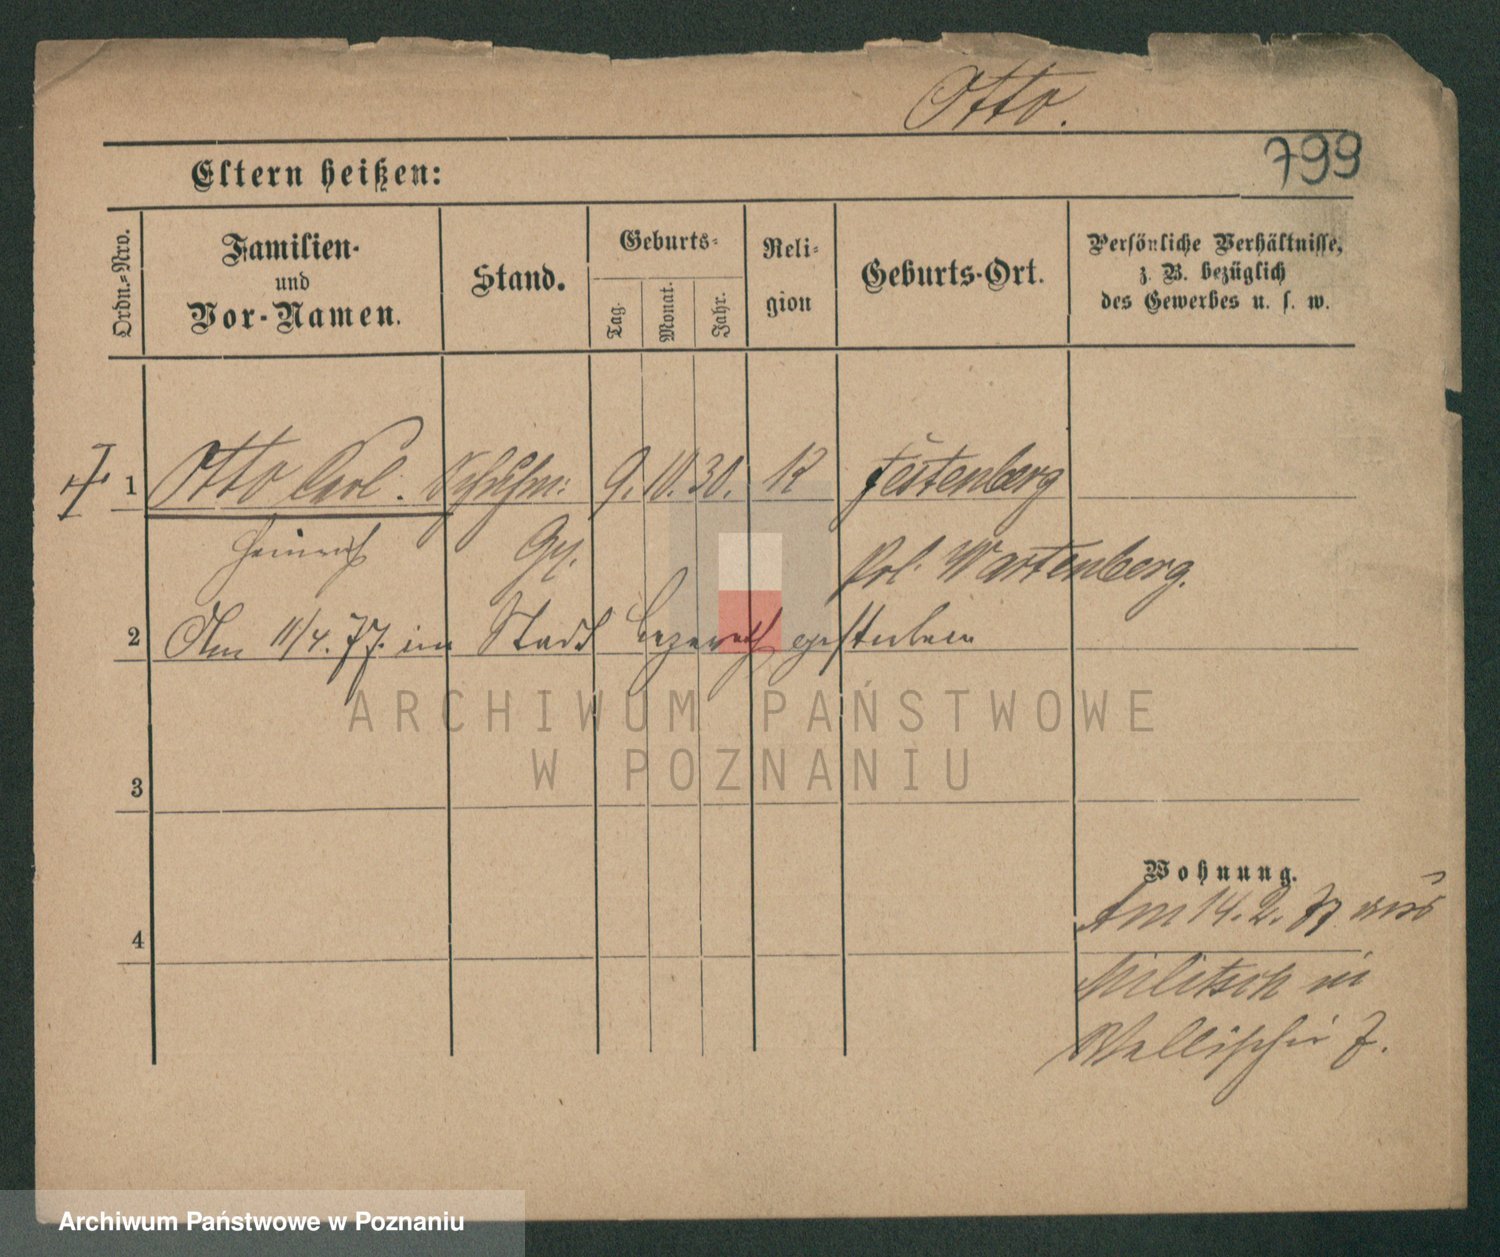 Otto.
799
Eltern heißen:
Ordn.-Nro.
Familien-
und
Vor-Namen.
Stand.
Geburts-
Tag.
Monat.
Jahr.
Reli-
gion
Geburts-Ort.
Persönliche Verhältnisse,
z. B. bezüglich
des Gewerbes u. s. w.
1 Otto Carl. Schuhm. 9. 10. 30. K Festenberg
Heinrich Pol. Wartenberg.
2 Am 11/4. 77. im Stadt Lazareth gestorben
ARCHIWUM PAŃSTWOWE
W POZNANIU
3
Wohnung.
Am 14. 2. 77 aus
4
Militsch in
Wallischei 7.
Archiwum Państwowe w Poznaniu